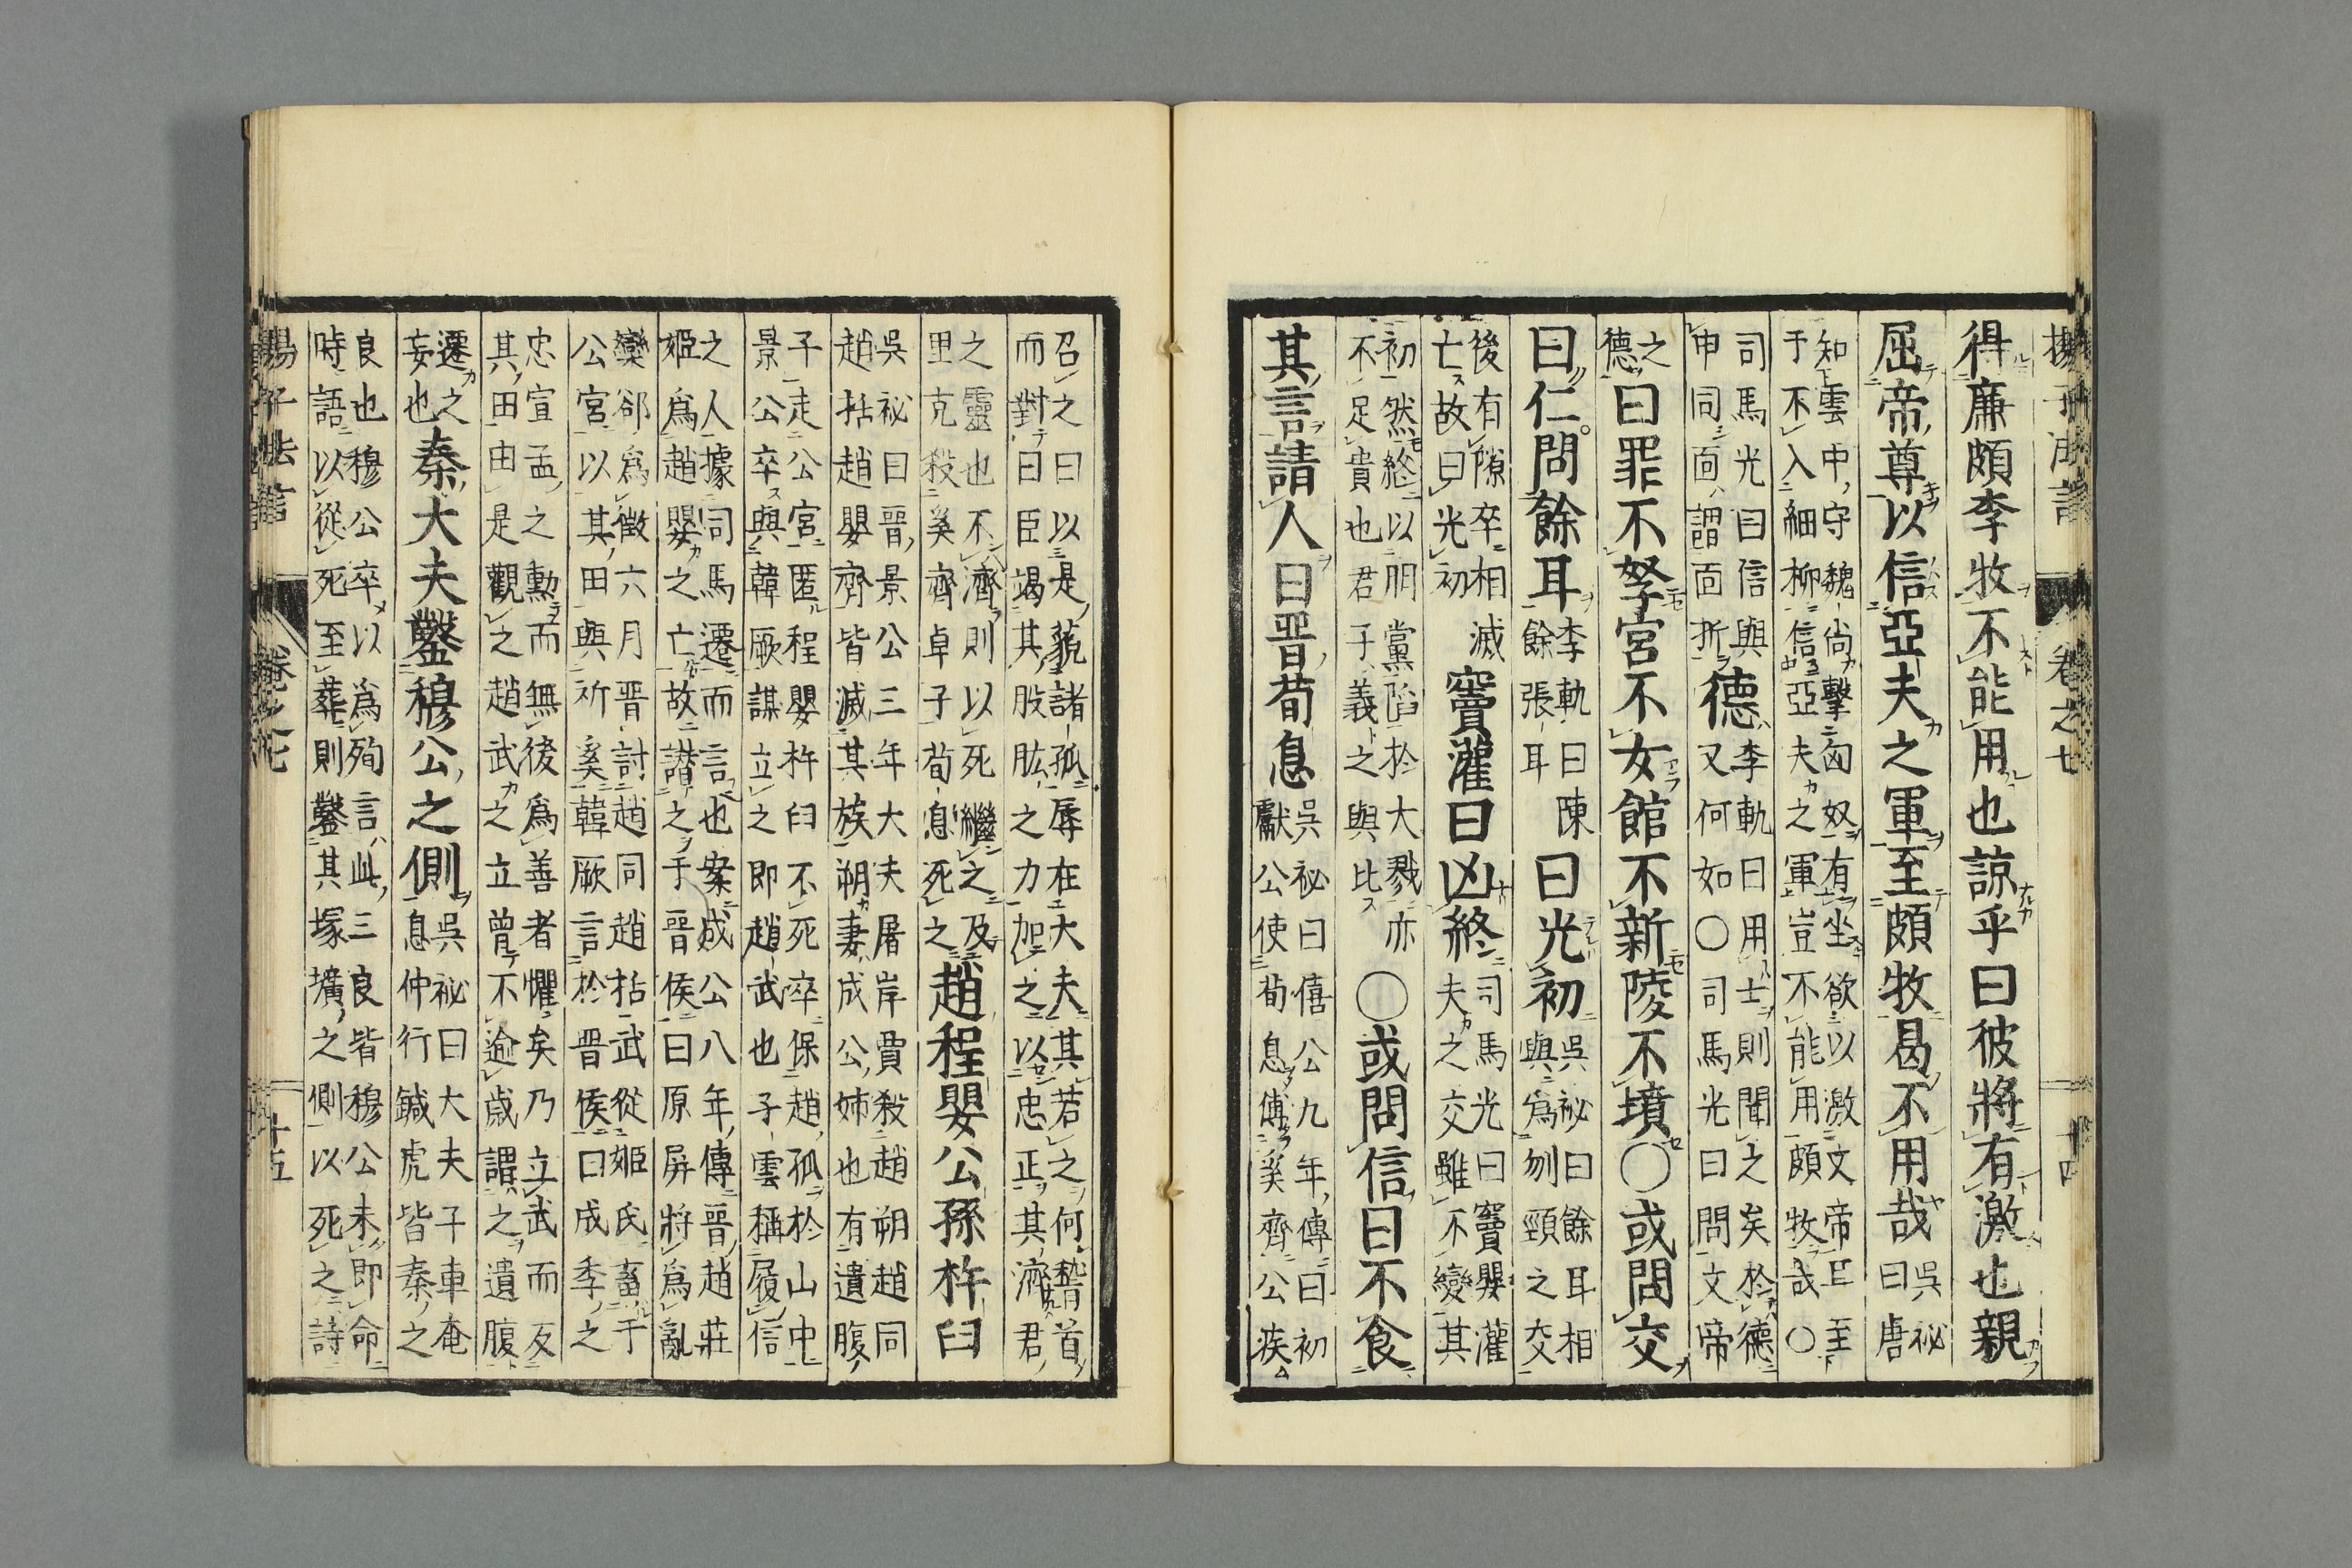 揚子法言 卷之七 十四
得廉頗李牧不能用也諒乎曰彼將有激也親
屈帝尊以信亞夫之軍至頗牧曷不用哉吳祕曰唐
知雲中守魏尚擊匈奴有坐欲以激文帝且至
于不入細柳信亞夫之軍豈不能用頗牧哉○
司馬光曰信與申同面謂面折德李軌曰用士則聞之矣於德又何如○司馬光曰問文帝
之德曰罪不孥宮不女館不新陵不墳○或問交
曰仁問餘耳李軌曰陳餘張耳曰光初吳祕曰餘耳相與爲刎頸之交
後有隙卒相滅亡故曰光初竇灌曰凶終司馬光曰竇嬰灌夫之交雖不變其
初然終以朋黨陷於大戮亦不足貴也君子義之與比○或問信曰不食
其言請人曰晉荀息吳祕曰僖公九年傳曰初獻公使荀息傅奚齊公疾
召之曰以是藐諸孤辱在大夫其若之何稽首
而對曰臣竭其股肱之力加之以忠正其濟君
之靈也不濟則以死繼之及里克殺奚齊卓子荀息死之趙程嬰公孫杵臼
吳祕曰晉景公三年大夫屠岸賈殺趙朔趙同
趙括趙嬰齊皆滅其族朔妻成公姊也有遺腹
子走公宮匿程嬰杵臼不死卒保趙孤於山中
景公卒與韓厥謀立之即趙武也子雲稱履信
之人據司馬遷而言也案成公八年傳晉趙莊
姬爲趙嬰之亡故譖之于晉侯曰原屏將爲亂
欒郤爲徵六月晉討趙同趙括武從姬氏畜于
公宮以其田與祈奚韓厥言於晉侯曰成季之
忠宣孟之勳而無後爲善者懼矣乃立武而反
其田由是觀之趙武之立曾不逾歲謂之遺腹
遷之妄也秦大夫鑿穆公之側吳祕曰大夫子車奄息仲行鍼虎皆秦之
良也穆公卒以爲殉言此三良皆穆公未即命
時語以從死至葬則鑿其塚壙之側以死之詩
揚子法言 卷之七 十五